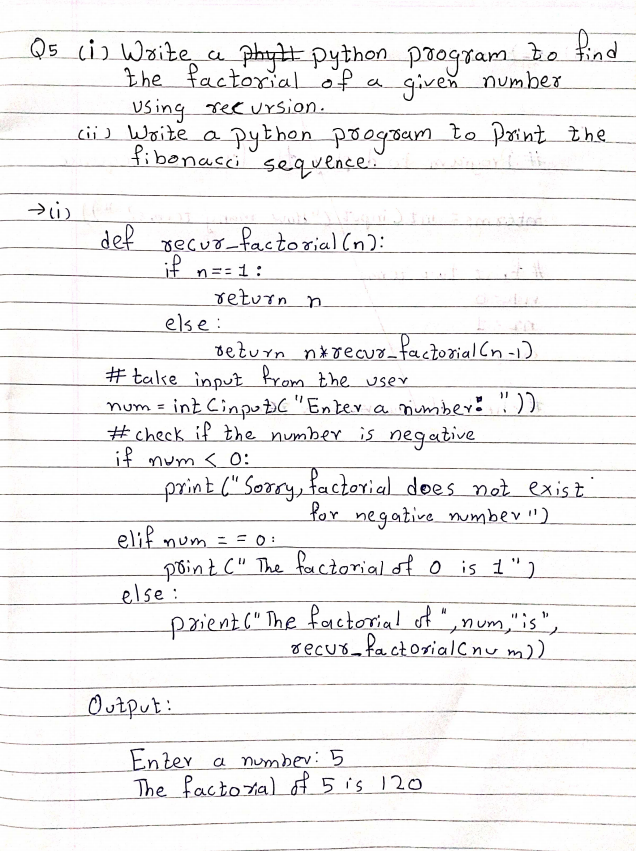 Q5 (i) Write a phytt python program to find
the factorial of a given number
using recursion.
(ii) Write a python program to Print the
fibonacci sequence.
→(i)
def recur_factorial(n):
if n==1:
return n
else:
return n*recur_factorial(n-1)
# take input from the user
num = int(input("Enter a number: "))
# check if the number is negative
if num < 0:
print("Sorry, factorial does not exist
for negative number")
elif num == 0:
print("The factorial of 0 is 1")
else:
prient("The factorial of", num, "is",
recur_factorial(num))
Output:
Enter a number: 5
The factorial of 5 is 120